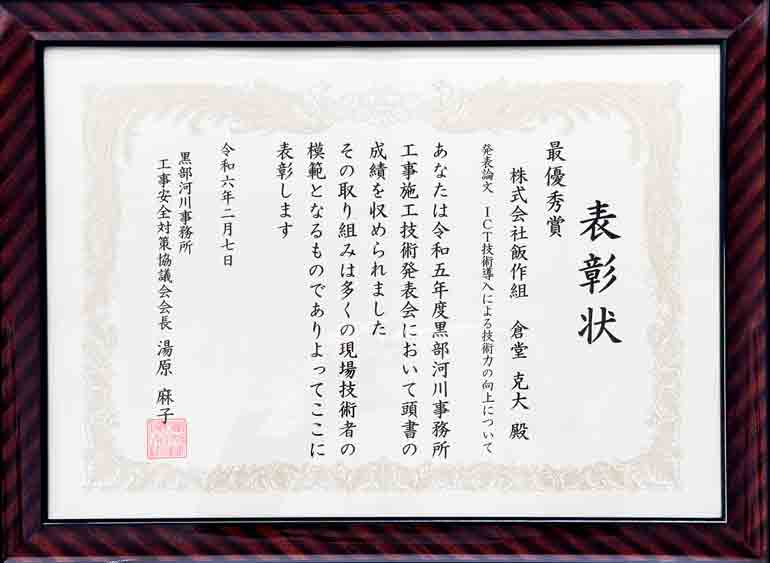 表彰状
最優秀賞
株式会社飯作組　倉堂 克大 殿
発表論文　ICT技術導入による技術力の向上について
あなたは令和五年度黒部河川事務所
工事施工技術発表会において頭書の
成績を収められました
その取り組みは多くの現場技術者の
模範となるものでありよってここに
表彰します
令和六年二月七日
黒部河川事務所
工事安全対策協議会会長　湯原 麻子